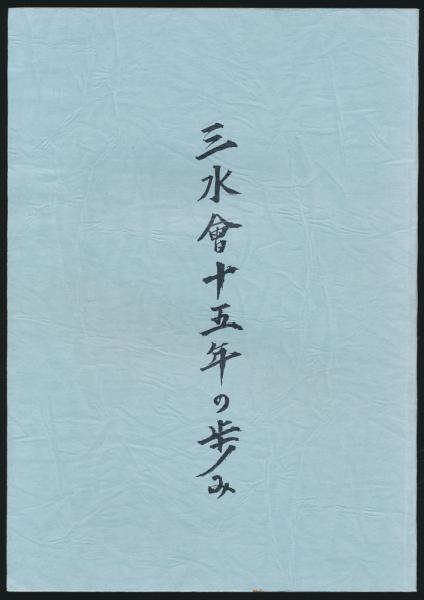 三水會十五年の歩み